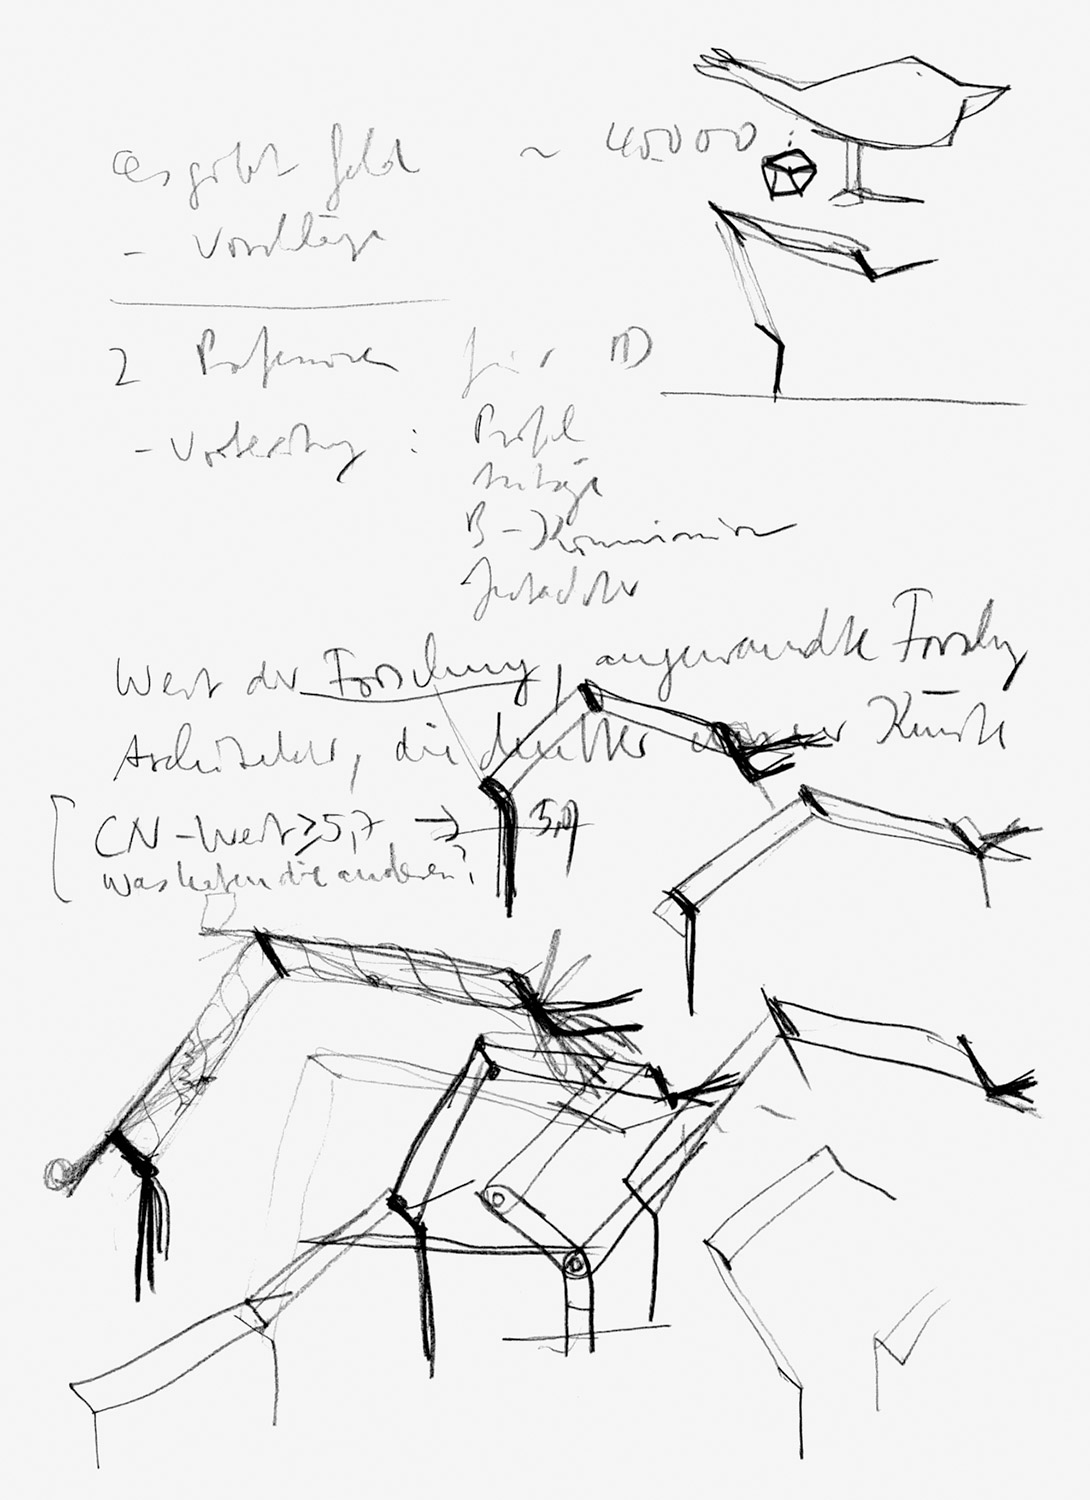 es gibt Geld ~ 40.000
- Vorschläge
2 Professuren für ID
- Vorbereitung :
Profil
Anträge
B-Kommission
Gutachter
Wert der Forschung, angewandte Forschg
Architektur, die Mutter Künste
CN-Wert ≥ 5,7 →
Was haben die anderen?